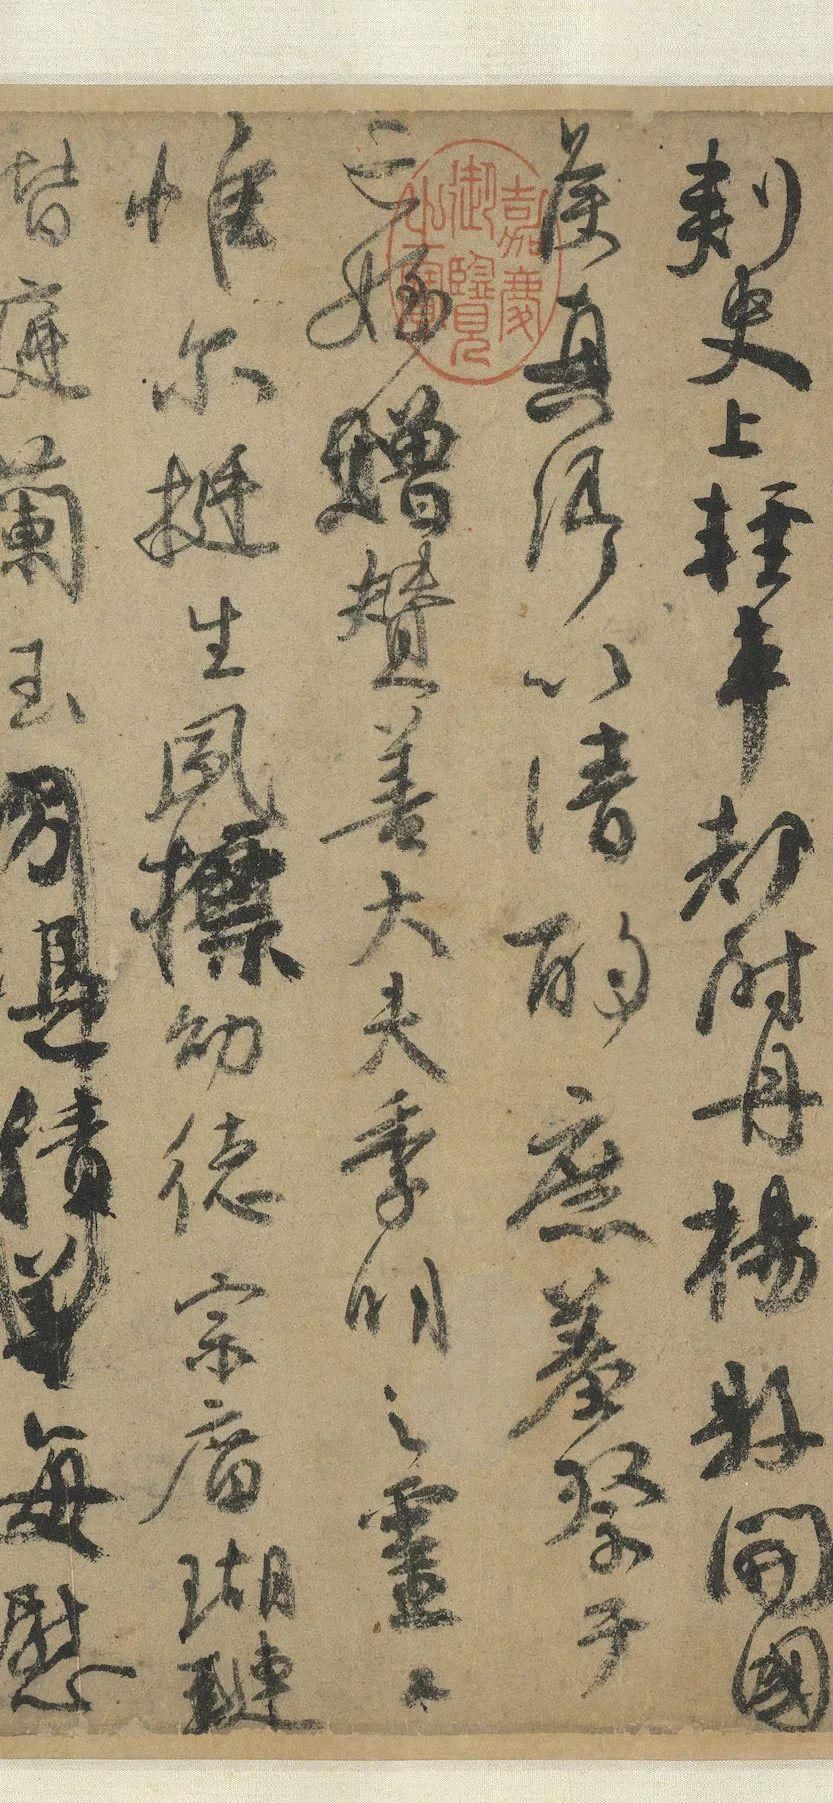 刺史上輕車都尉丹楊縣開國
侯真卿以清酌庶羞祭于
亡姪贈贊善大夫季明之靈曰
惟尔挺生夙標幼德宗庿瑚璉
階庭蘭玉方憑積善每慰
嘉慶御覽之寶